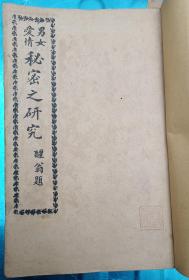 男女愛情秘密之研究
醒翁題